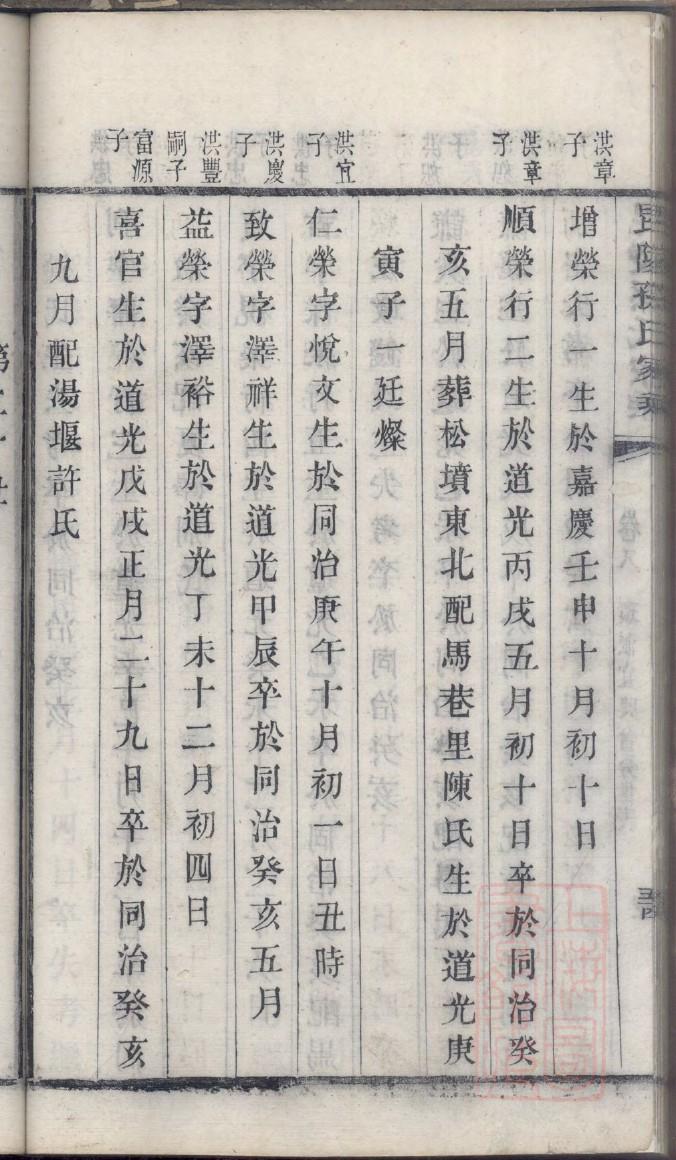 毘陵孫氏家乘
卷八
洪章子
增榮行一生於嘉慶壬申十月初十日
洪章子
順榮行二生於道光丙戌五月初十日卒於同治癸
亥五月葬松墳東北配馬巷里陳氏生於道光庚
寅子一廷燦
洪宜子
仁榮字悅文生於同治庚午十月初一日丑時
洪慶子
致榮字澤祥生於道光甲辰卒於同治癸亥五月
洪豐嗣子
益榮字澤裕生於道光丁未十二月初四日
富源子
喜官生於道光戊戌正月二十九日卒於同治癸亥
九月配湯堰許氏